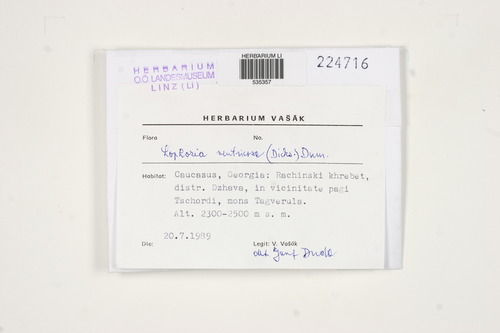 HERBARIUM
O.Ö. LANDESMUSEUM
LINZ (LI)
HERBARIUM LI
535357
224716
HERBARIUM VAŠÁK
Flora No.
Lophozia ventricosa (Dicks.) Dum.
Habitat: Caucasus, Georgia: Rachinski khrebet,
distr. Dzhava, in vicinitate pagi
Tschordi, mons Tagverula.
Alt. 2300-2500 m s. m.
Die: 20.7.1989
Legit: V. Vašák
det. Duda